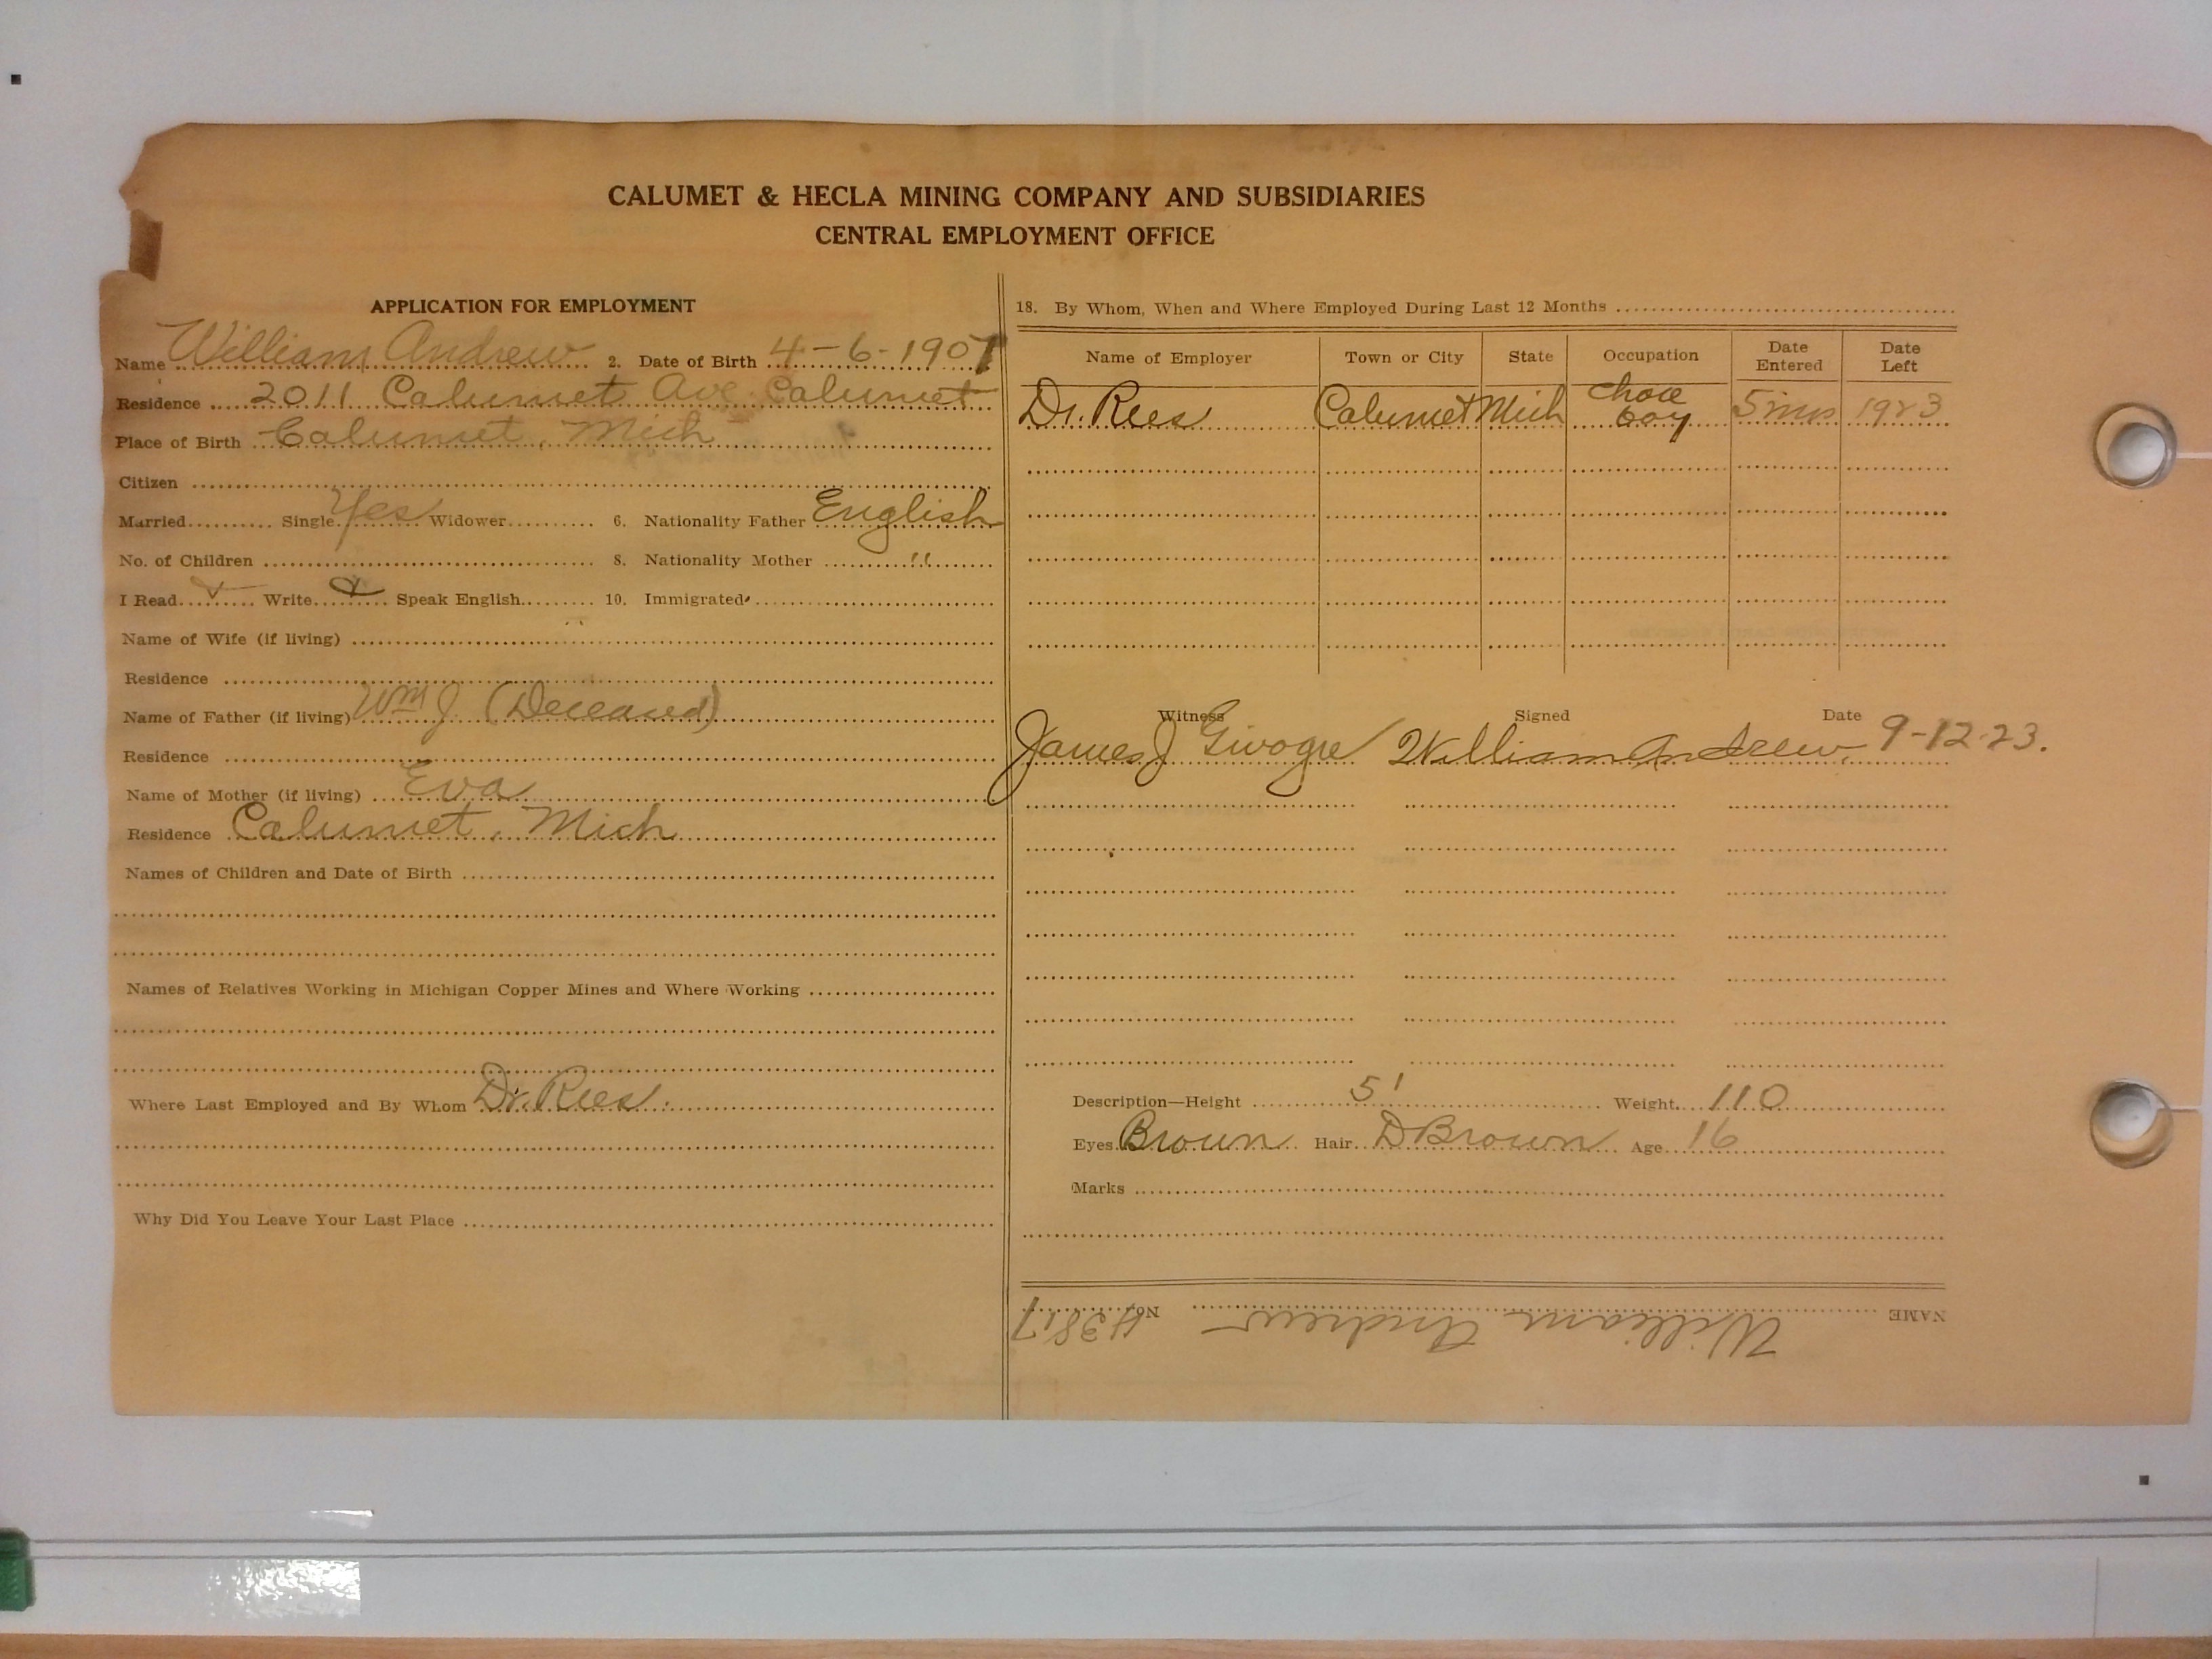 CALUMET & HECLA MINING COMPANY AND SUBSIDIARIES
CENTRAL EMPLOYMENT OFFICE
APPLICATION FOR EMPLOYMENT
Name William Andrew 2. Date of Birth 4-6-1907
Residence 2011 Calumet Ave Calumet
Place of Birth Calumet, Mich
Citizen
Married Single Yes Widower 6. Nationality Father English
No. of Children 8. Nationality Mother "
I Read ✓ Write ✓ Speak English 10. Immigrated
Name of Wife (if living)
Residence
Name of Father (if living) Wm J. (Deceased)
Residence
Name of Mother (if living) Eva
Residence Calumet, Mich
Names of Children and Date of Birth
Names of Relatives Working in Michigan Copper Mines and Where Working
Where Last Employed and By Whom Dr. Rees.
Why Did You Leave Your Last Place
18. By Whom, When and Where Employed During Last 12 Months
Name of Employer Town or City State Occupation Date Entered Date Left
Dr. Rees Calumet Mich chore boy 5 mos 1923
Witness Signed Date
James J William Andrew 9-12-23.
Description—Height 5' Weight 110
Eyes Brown Hair D Brown Age 16
Marks
NAME William Andrew No. 43817